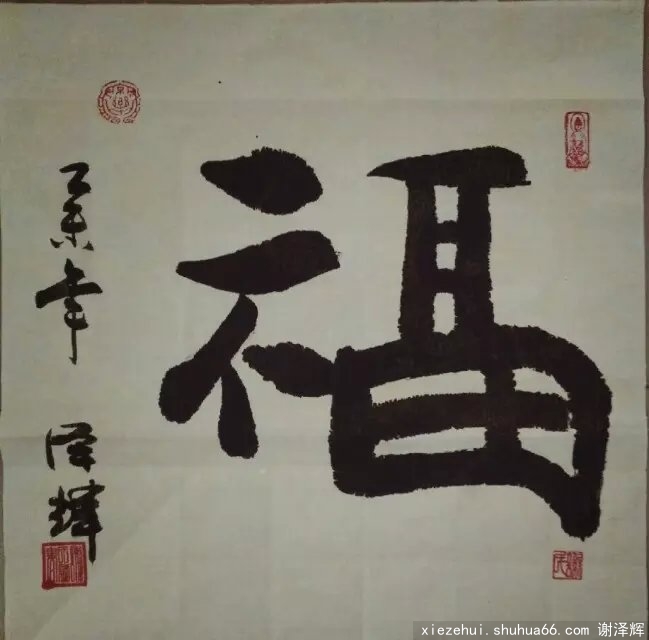 福
乙未年
泽辉
xiezehui.shuhua66.com 谢泽辉